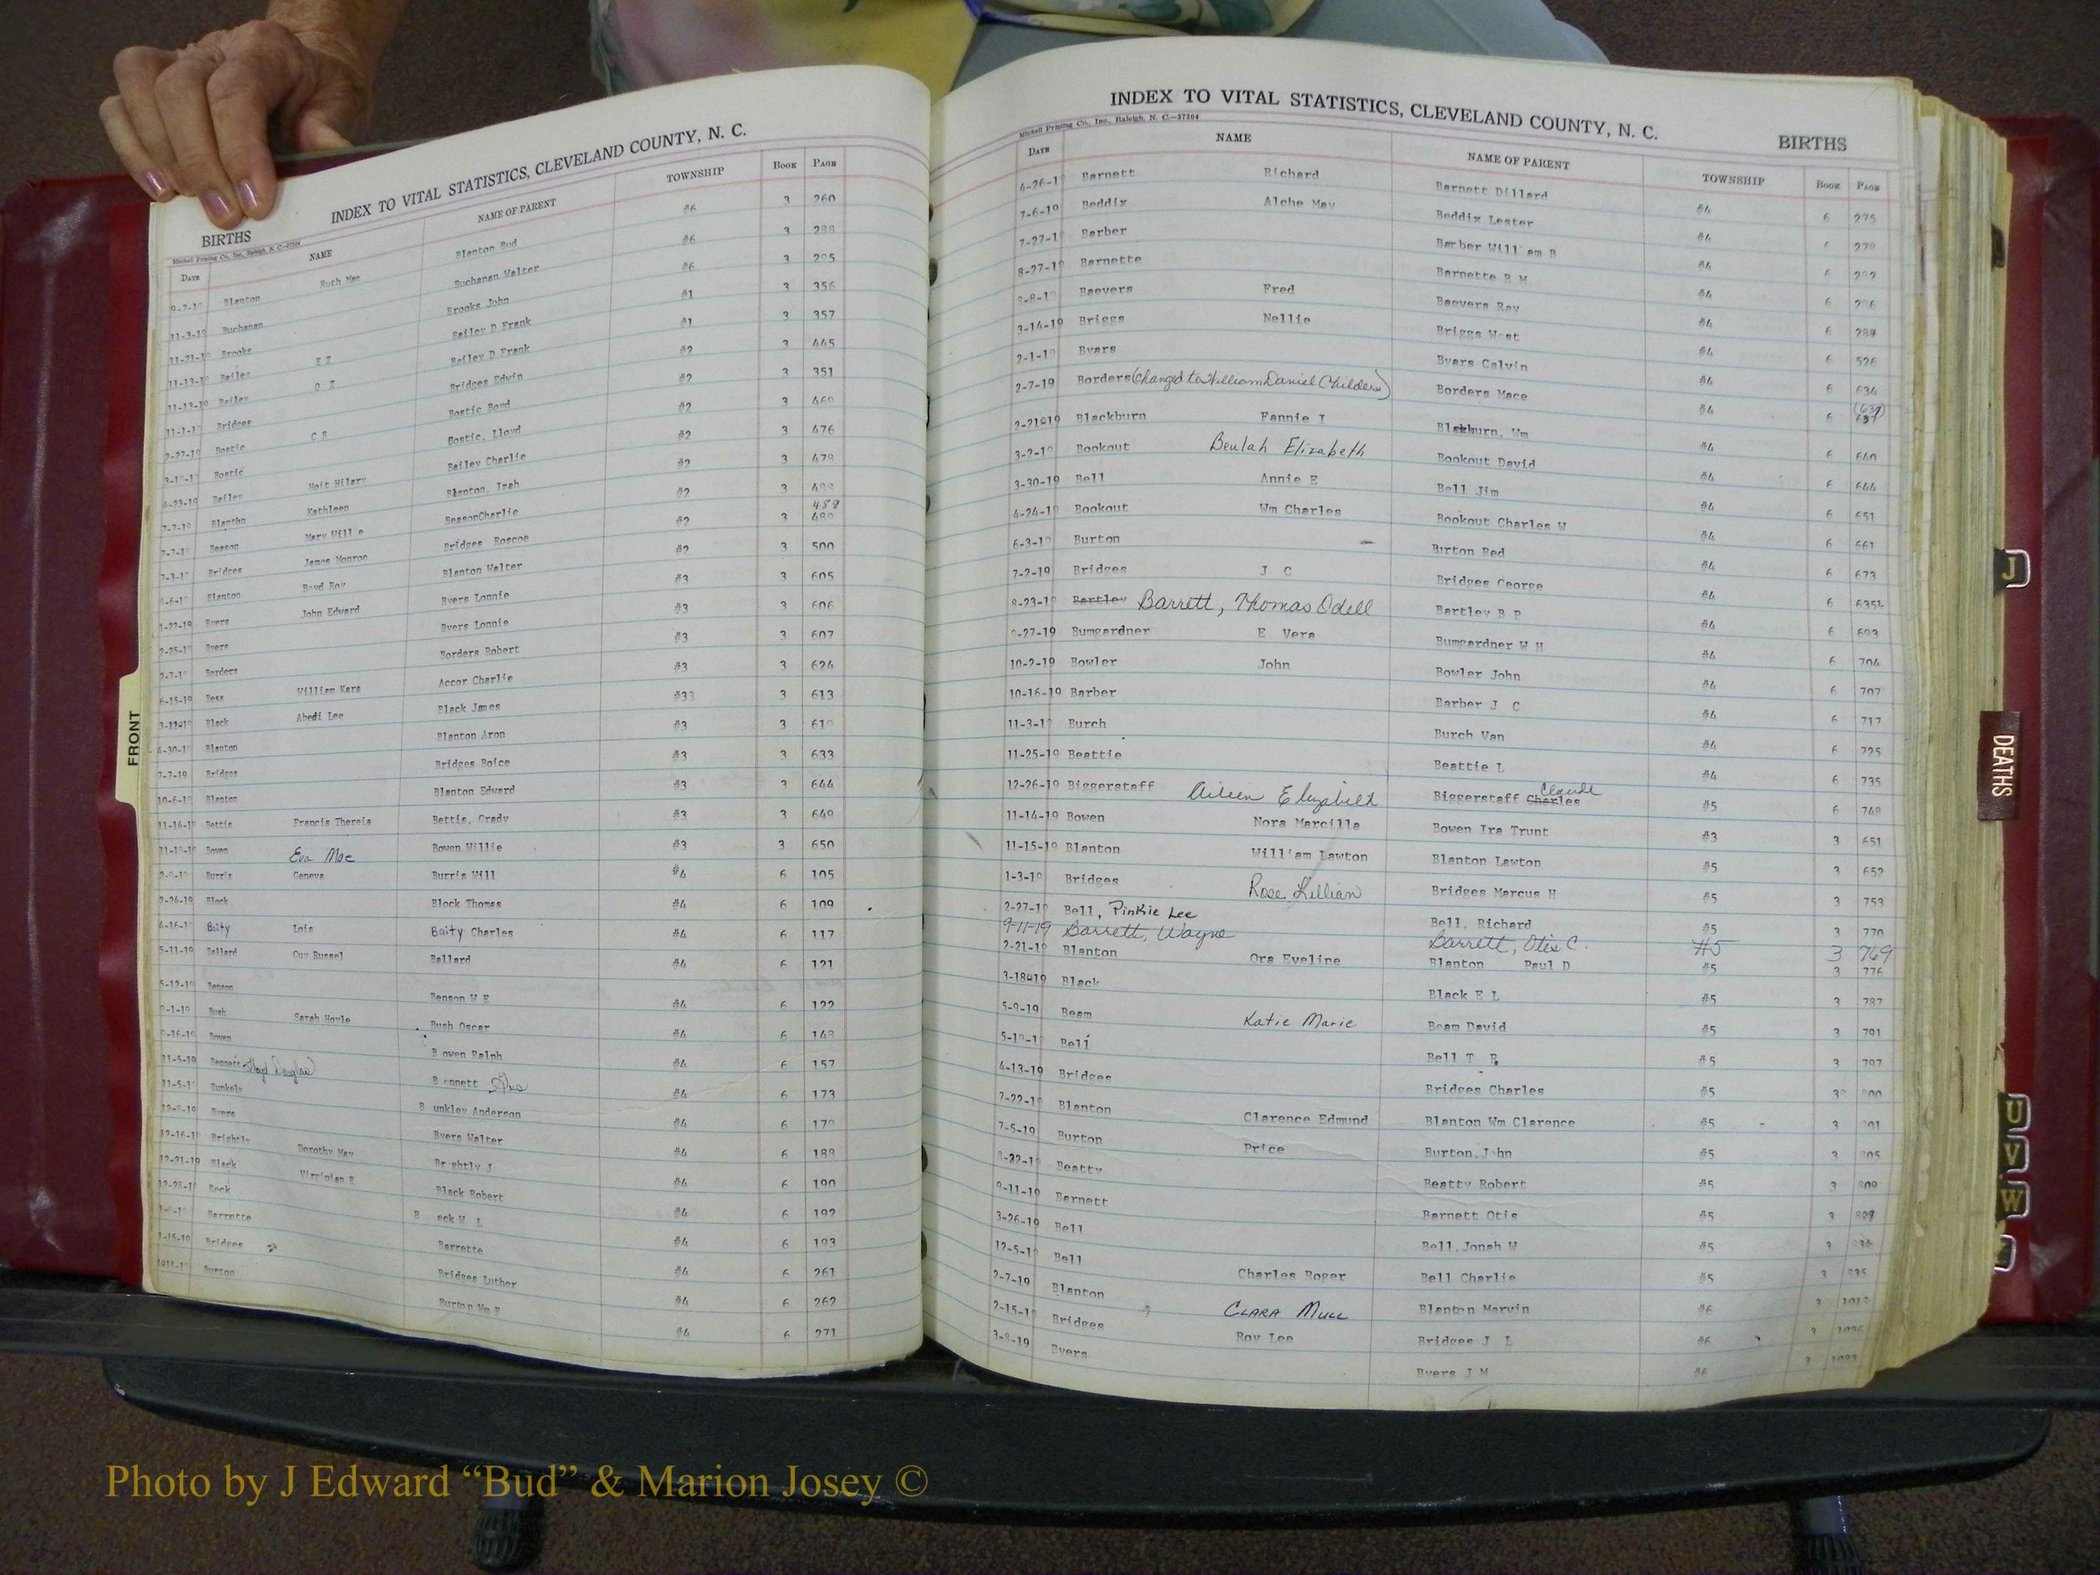 INDEX TO VITAL STATISTICS, CLEVELAND COUNTY, N. C.
BIRTHS
DATE NAME NAME OF PARENT TOWNSHIP BOOK PAGE
Blanton Ruth Mae Blanton Bud #6 3 260
Buchanan Buchanan Walter #6 3
Brooks Brooks John #6 3
Bailey E Z Bailey D Frank #1 3 356
Bailey O E Bailey D Frank #1 3 357
Bridges Bridges Edwin #2 3 445
Bostic C B Bostic Boyd #2 3 351
Bostic Bostic, Lloyd #2 3 460
Bailey Hoit Hilery Bailey Charlie #2 3 476
Blanton Kathleen Blanton, Izah #2 3 478
Beason Mary Will e BeasonCharlie #2 3
Bridges James Monroe Bridges Roscoe #2 3 489
Blanton Boyd Roy Blanton Walter #2 3 500
Byers John Edward Byers Lonnie #3 3 605
Byers Byers Lonnie #3 3 606
Borders Borders Robert #3 3 607
William Kara Accor Charlie #3 3 624
Black Abedi Lee Black James #33 3 613
Blanton Blanton Aron #3 3 610
Bridges Bridges Boice #3 3 633
Blanton Blanton Edward #3 3 644
Bettis Francis Thereis Bettis, Grady #3 3 649
Bowen Eva Mae Bowen Willie #3 3 650
Burris Geneva Burris Will #4 6 105
Block Block Thomas #4 6 109
Baity Lois Baity Charles #4 6 117
Ballard Guy Russel Ballard #4 6 121
Benson Benson W E #4 6 122
Bush Sarah Hoyle Bush Oscar #4 6 148
Bowen B owen Ralph #4 6 157
Bennett Floyd Douglas B ennett #4 6 173
Bunkely B unkley Anderson #4 6 179
Byers Byers Walter #4 6 188
Brightly Dorothy May Br ghtly J #4 6 190
Black Virginian R Black Robert #4 6 192
Beck B eck W L #4 6 193
Barrette Barrette #4 6 261
Bridges Bridges Luther #4 6 262
Burton Burton Wm #4 6 271
FRONT
INDEX TO VITAL STATISTICS, CLEVELAND COUNTY, N. C.
Mitchell Printing Co., Inc., Raleigh, N. C.—37304
BIRTHS
DATE NAME NAME OF PARENT TOWNSHIP BOOK PAGE
4-26-19 Barnett Richard Barnett Dillard #4 6 275
7-6-19 Beddix Alche May Beddix Lester #4 6
7-27-19 Barber Barber Will am B #4 6
8-27-19 Barnette Barnette R M #4 6
Beavers Fred Beavers Roy #4 6
3-14-19 Briggs Nellie Briggs West #4 6 526
2-1-19 Byars Byars Calvin #4 6 634
2-7-19 Borders (Changed to William Daniel Childers) Borders Mace #4 6 637
2-21-19 Blackburn Fannie I Blackburn, Wm #4 6 640
3-2-19 Bookout Beulah Elizabeth Bookout David #4 6 644
3-30-19 Bell Annie E Bell Jim #4 6 651
4-24-19 Bookout Wm Charles Bookout Charles W #4 6 661
6-3-19 Burton Burton Red #4 6 673
7-2-19 Bridges J C Bridges George #4 6
8-23-19 Bartley Barrett, Thomas Odell Bartley B P #4 6 693
9-27-19 Bumgardner E Vera Bumgardner W H #4 6 704
10-2-19 Bowler John Bowler John #4 6 707
10-16-19 Barber Barber J C #4 6 717
11-3-19 Burch Burch Van #4 6 725
11-25-19 Beattie Beattie L #4 6 735
12-26-19 Biggerstaff Aileen Elizabeth Biggerstaff Charles Claude #5 6 748
11-14-19 Bowen Nora Marcilla Bowen Ira Trunt #3 3 651
11-15-19 Blanton William Lawton Blanton Lawton #5 3 652
1-3-19 Bridges Rose Lillian Bridges Marcus H #5 3 753
2-27-19 Bell, Pinkie Lee Bell, Richard #5 3 770
9-11-19 Barrett, Wayne Barrett, Otis C. #5 3 769
2-21-19 Blanton Ora Eveline Blanton Paul D #5 3 776
3-18-19 Black Black E L #5 3 787
5-9-19 Beam Katie Marie Beam David #5 3 791
5-10-19 Bell Bell T R #5 3 797
4-13-19 Bridges Bridges Charles #5 3 800
7-22-19 Blanton Clarence Edmund Blanton Wm Clarence #5 3 801
7-5-19 Burton Price Burton, John #5 3 805
Beatty Beatty Robert #5 3 809
9-11-19 Barnett Barnett Otis #5 3
3-26-19 Bell Bell, Jonah W #5 3
12-5-19 Bell Charles Roger Bell Charlie #5 3 835
2-7-19 Blanton CLARA MULL Blanton Marvin #6 3
2-15-19 Bridges Roy Lee Bridges J L #6 3
3-8-19 Byers Byers J M #6 3
J
DEATHS
U
V
W
Photo by J Edward “Bud” & Marion Josey ©